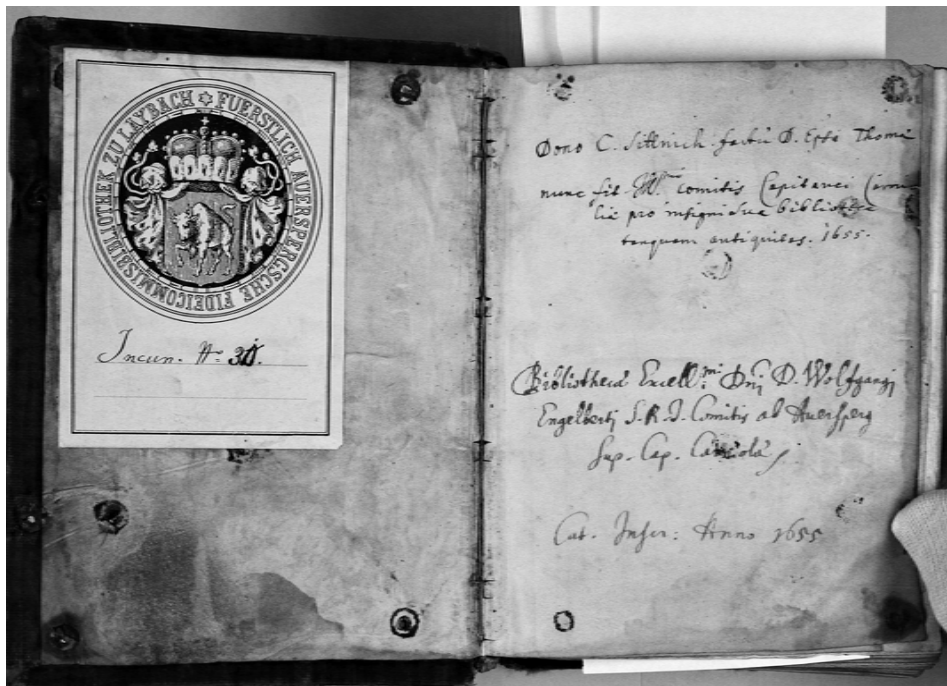 FUERSTLICH AUERSPERGSCHE FIDEICOMMISBIBLIOTHEK ZU LAYBACH
Incun. No
Dono C. Sittnich D. Thomæ
nunc sit Illmi comitis Capitanei
liæ pro insigni sua bibliotheca
tanquam antiquitas. 1655.
Bibliothecæ Excell:mi Dnj D. Wolfgangj
Engelbertj S. R. I. Comitis ab Auersperg
Sup. Cap. Carniolæ
Cat. Inser: Anno 1655